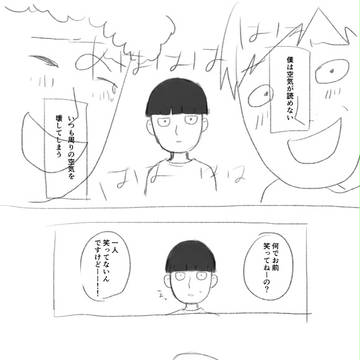 僕は空気が読めない
いつも周りの空気を
壊してしまう
ははははは
はははは
何でお前
笑ってねーの?
一人
笑ってないん
ですけどーーー!!